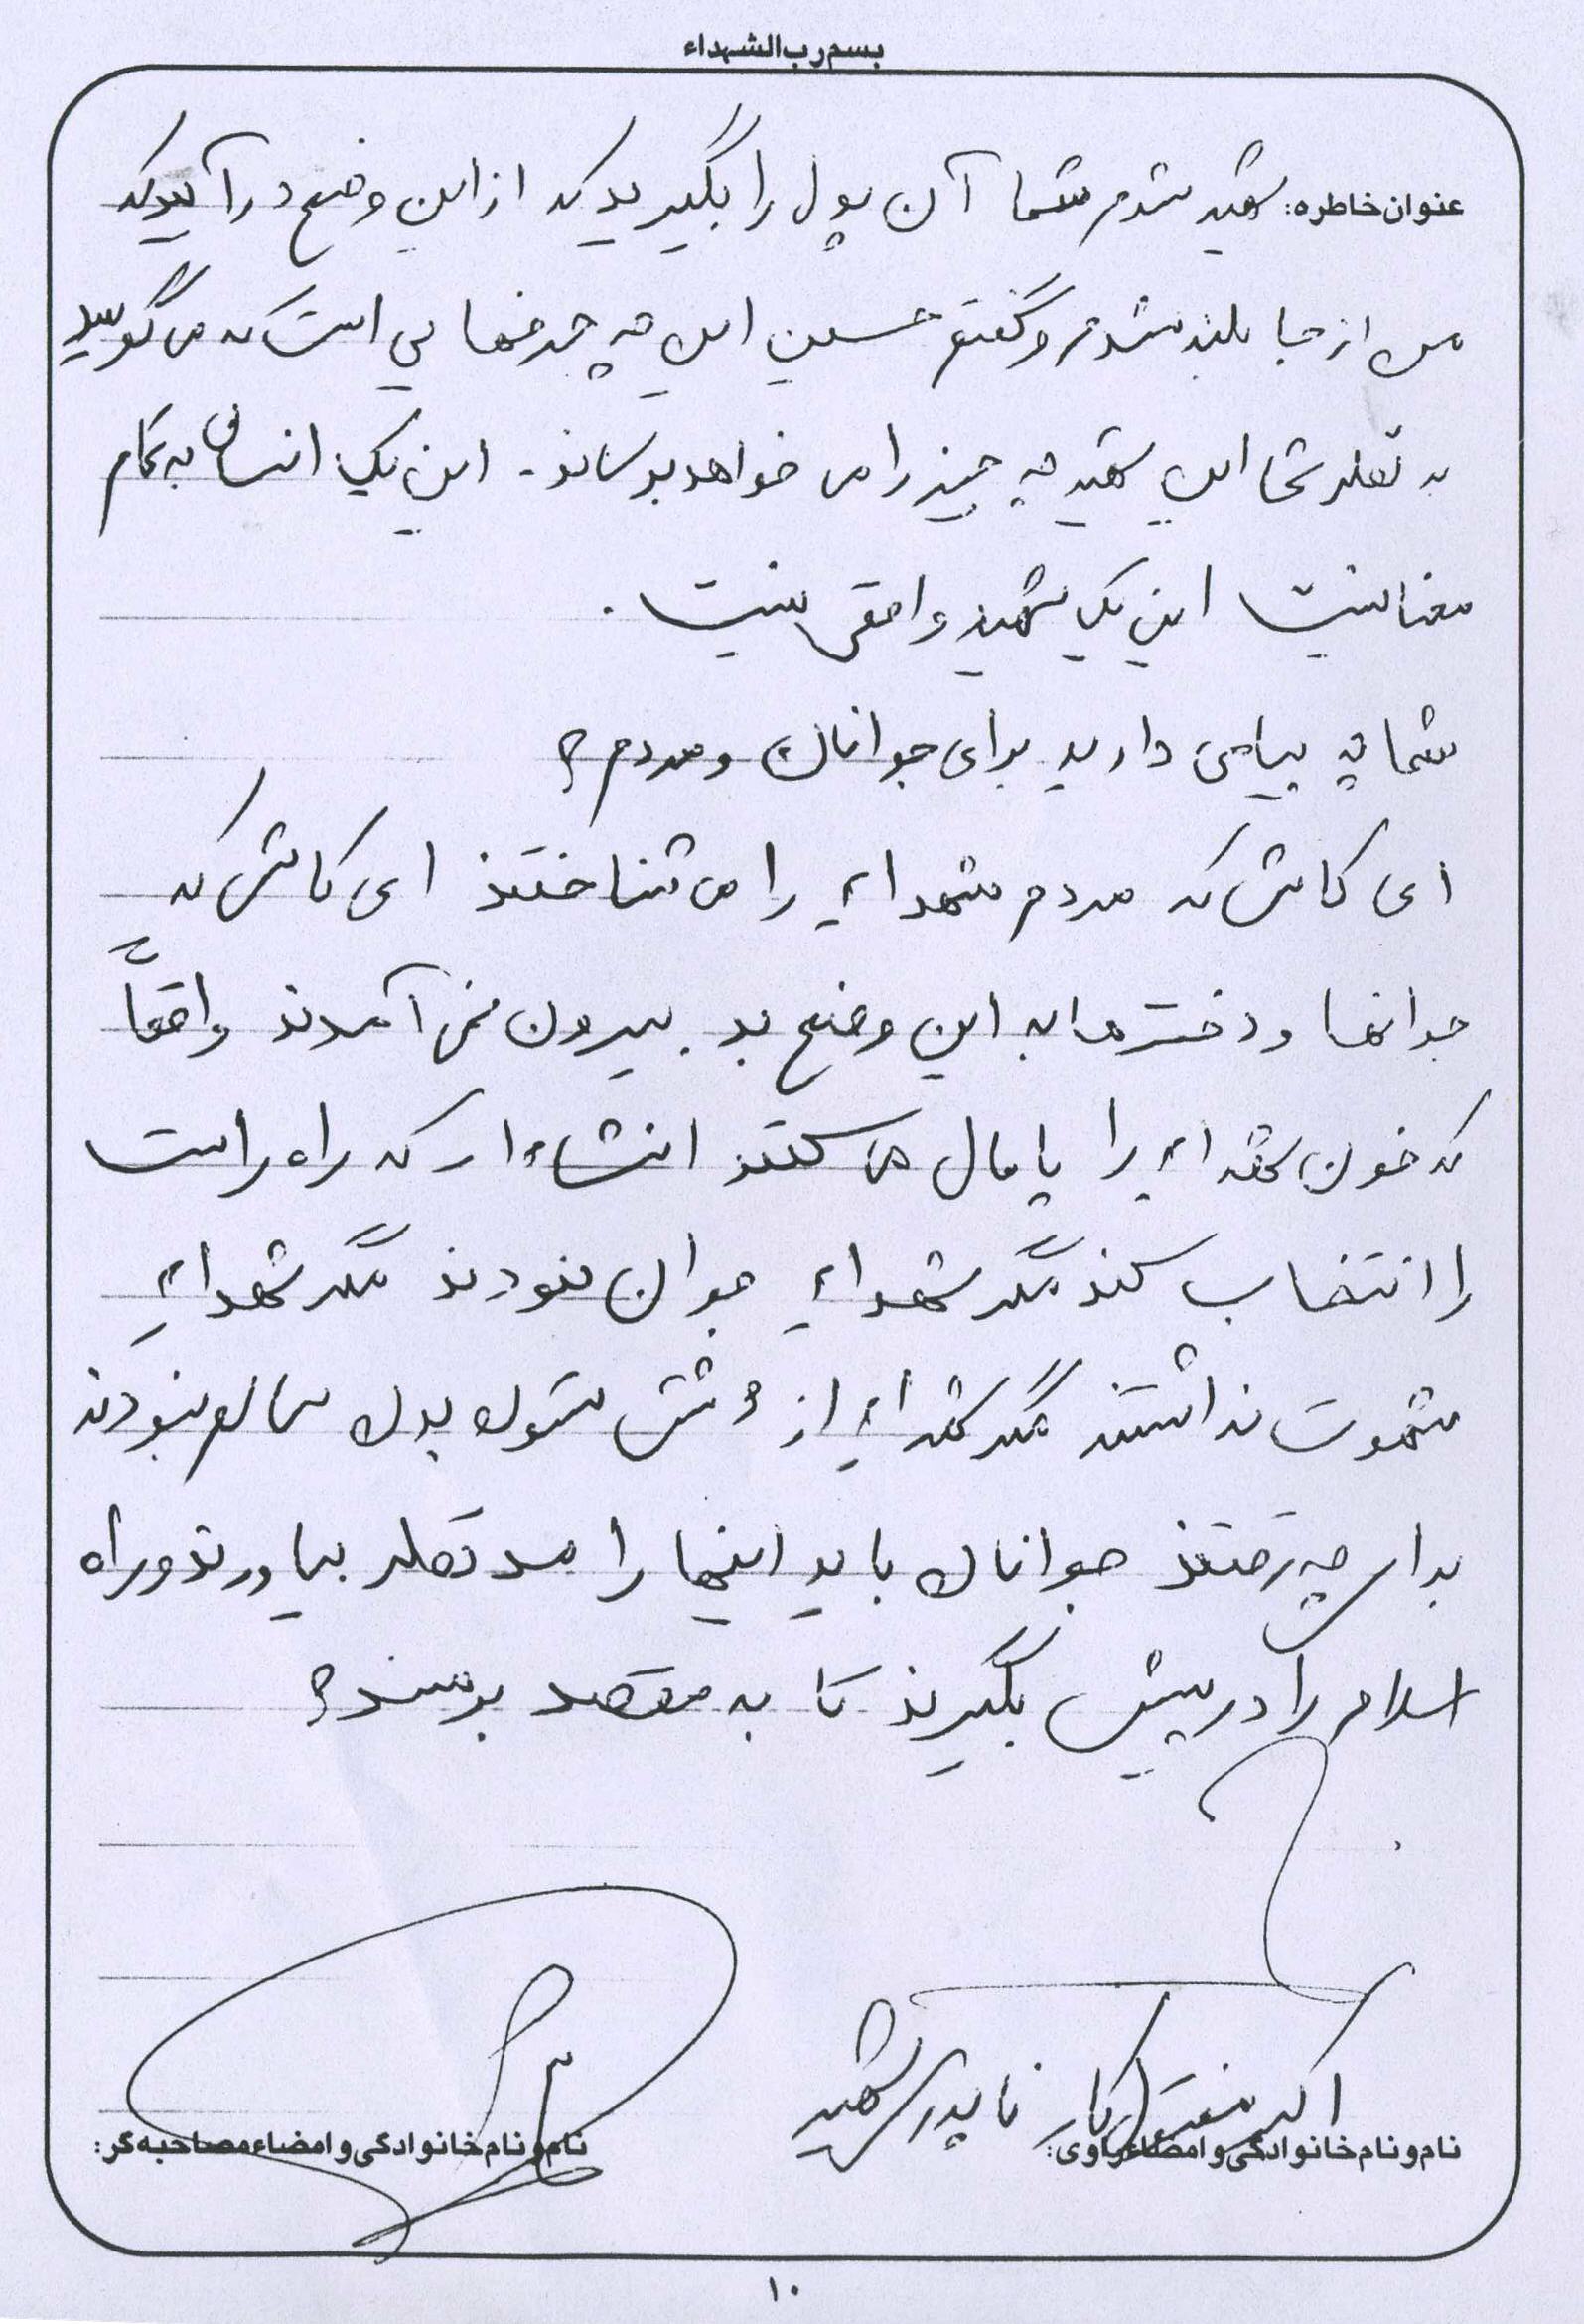 بسم رب الشهداء
عنوان خاطره: شهید شدم شما آن پول را بگیرید که از این وضع در آیید که
من از جا بلند شدم و گفتم حسین این چه حرفهایی است که می گویید
به نظر شما این شهید چه چیز را می خواهد برساند. این یک انسان به تمام
معنا نیست این یک شهید واقعی نیست.
شما چه پیامی دارید برای جوانان و مردم؟
ای کاش که مردم شهداء را می شناختند ای کاش که
جوانها و دخترها به این وضع بد بیرون نمی آمدند واقعاً
که خون شهداء را پامال می کنند انشاء ا... که راه راست
را انتخاب کنند مگر شهداء جوان نبودند مگر شهداء
شهوت نداشتند مگر شهداء از بدن سالم نبودند
برای چه رفتند جوانان باید اینها را مد نظر بیاورند و راه
اسلام را در پیش بگیرند تا به مقصد برسند؟
اکبر پدر شهید
نام و نام خانوادگی و امضاء راوی:
نام و نام خانوادگی و امضاء مصاحبه گر:
۱۰